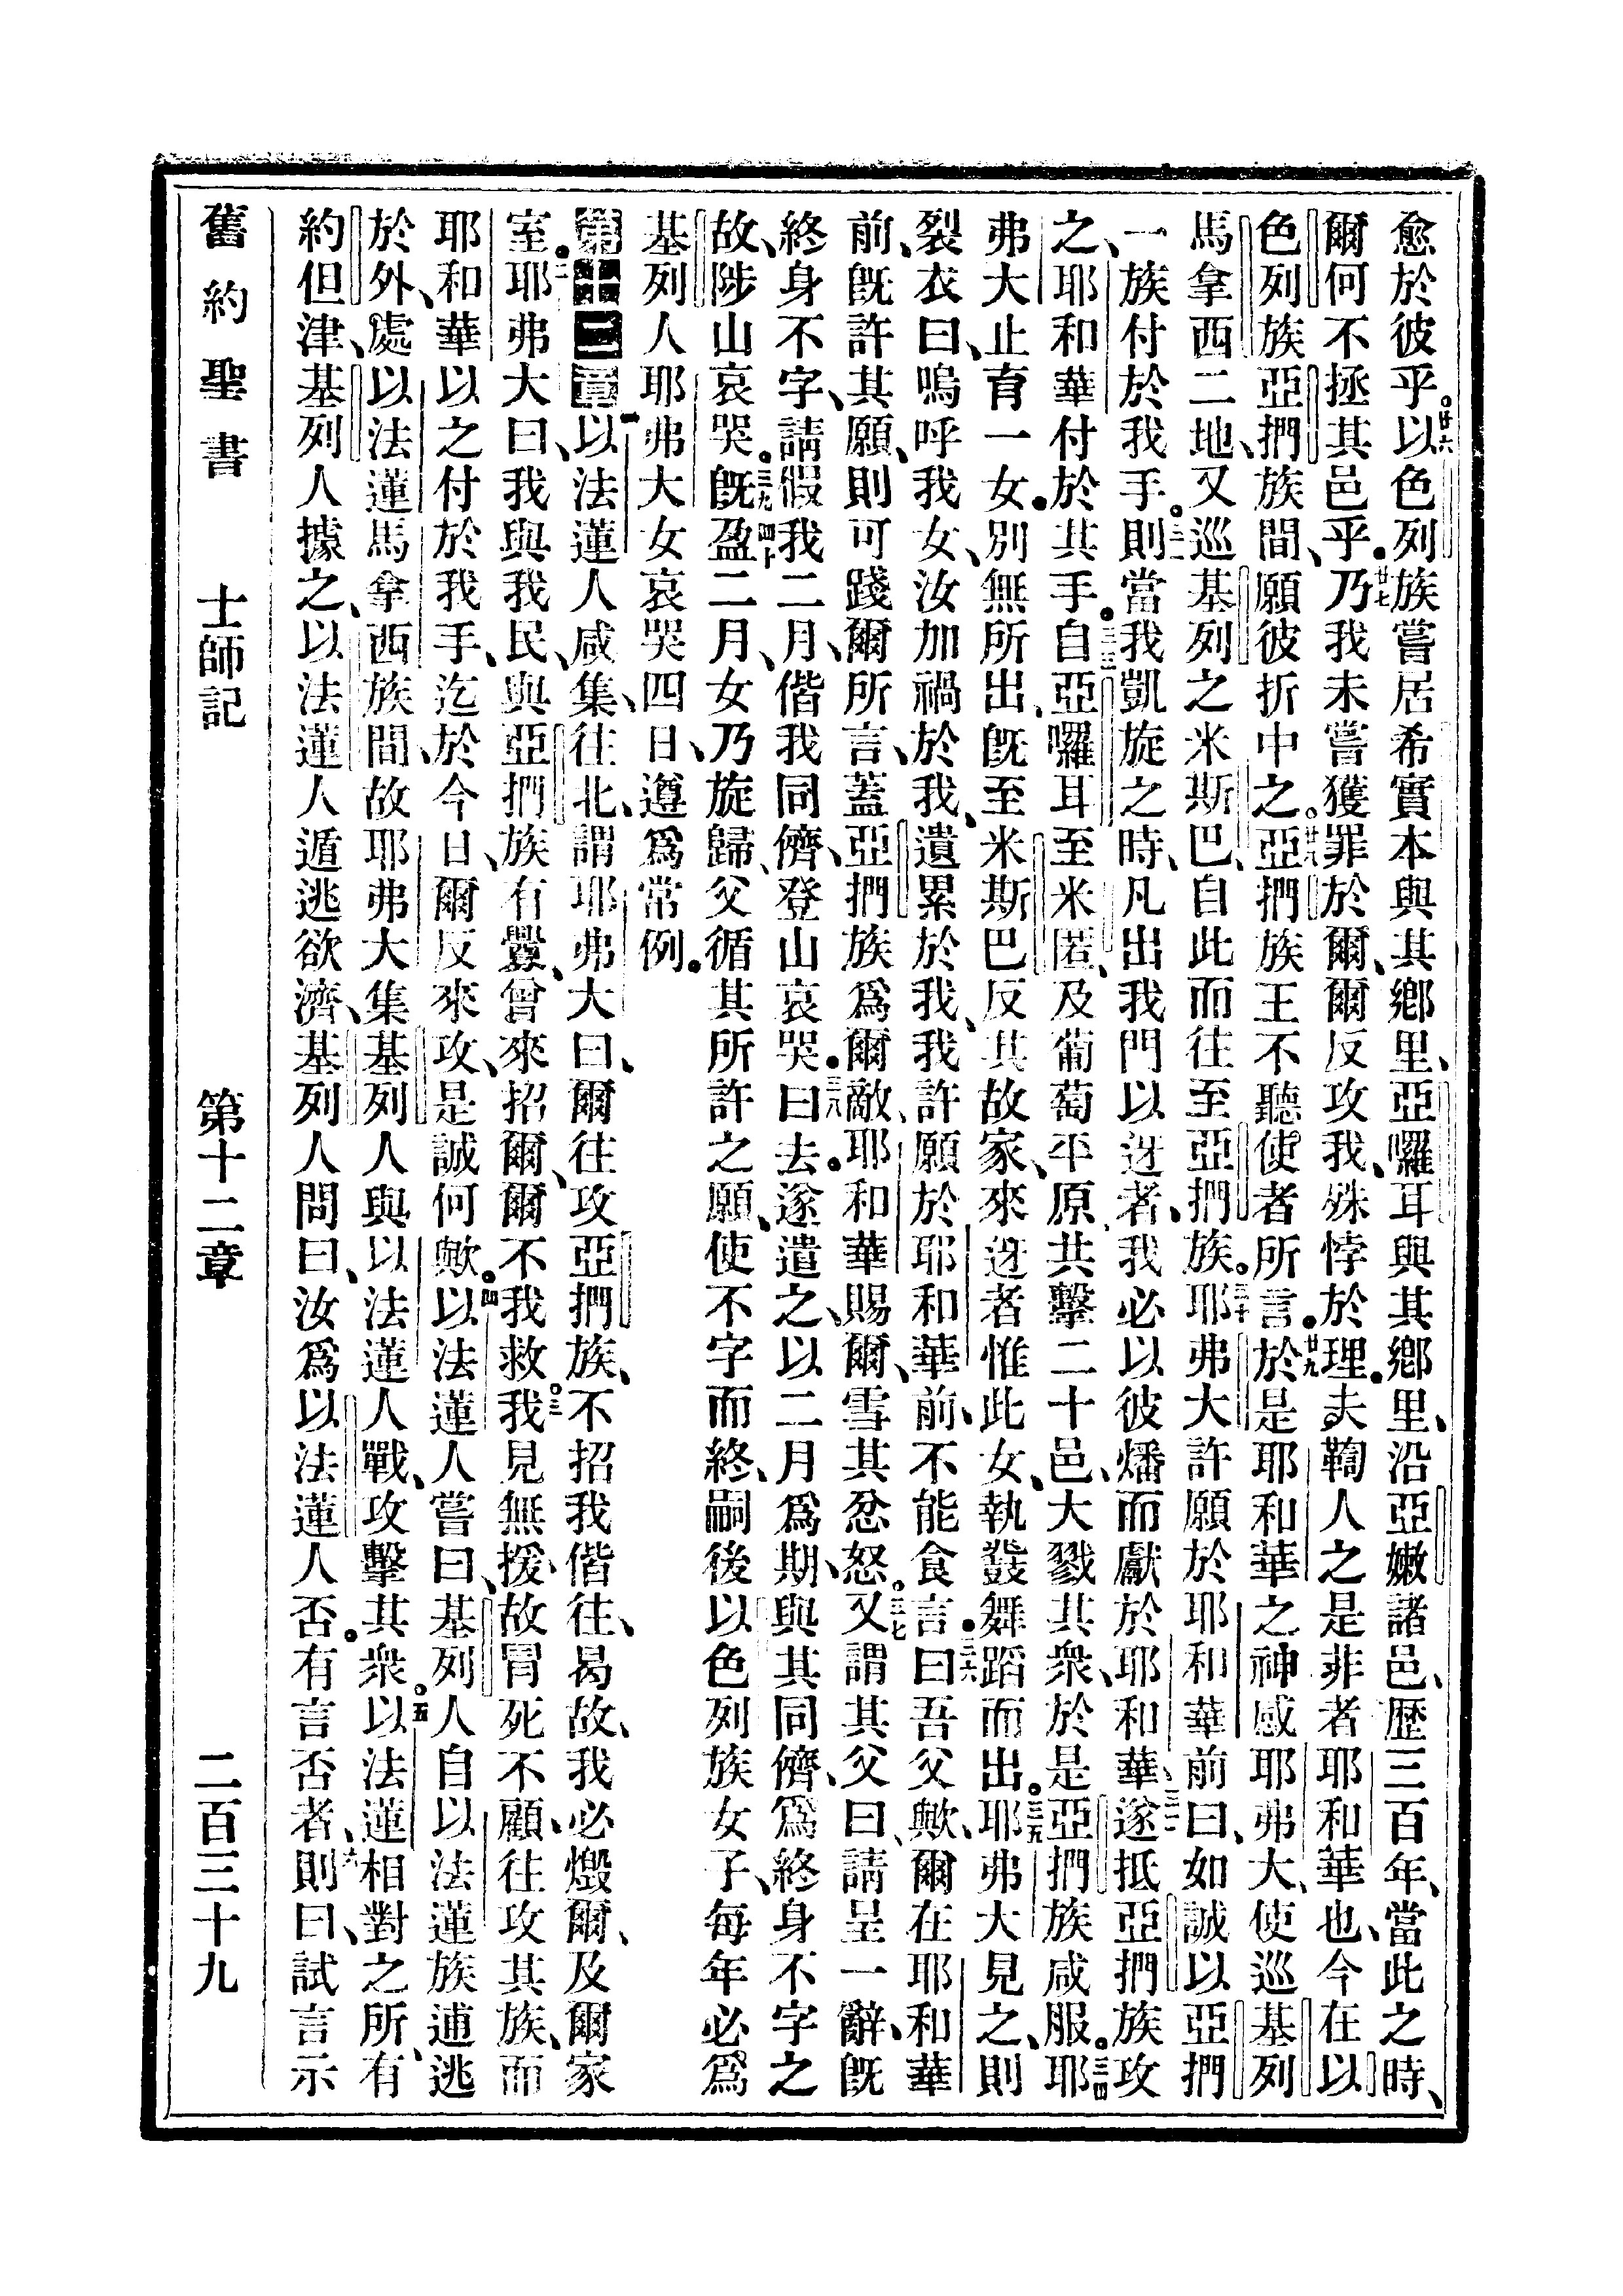 愈於彼乎。廿六以色列族嘗居希實本與其鄉里、亞囉耳與其鄉里、沿亞嫩諸邑、歷三百年、當此之時、
爾何不拯其邑乎。廿七乃我未嘗獲罪於爾、爾反攻我、殊悖於理。夫鞫人之是非者耶和華也、今在以
色列族亞捫族間、願彼折中之。廿八亞捫族王不聽使者所言。廿九於是耶和華之神感耶弗大、使巡基列
馬拿西二地、又巡基列之米斯巴、自此而往至亞捫族。三十耶弗大許願於耶和華前曰、如誠以亞捫
一族付於我手。三一則當我凱旋之時、凡出我門以迓者、我必以彼燔而獻於耶和華、三二遂抵亞捫族攻
之、耶和華付於其手。三三自亞囉耳至米匿、及葡萄平原、共擊二十邑、大戮其衆、於是亞捫族咸服。三四耶
弗大止育一女。別無所出、旣至米斯巴、反其故家、來迓者惟此女、執鼗舞蹈而出。三五耶弗大見之、則
裂衣曰、嗚呼我女、汝加禍於我、遺累於我、我許願於耶和華前、不能食言。三六曰吾父歟、爾在耶和華
前、旣許其願、則可踐爾所言、蓋亞捫族爲爾敵、耶和華賜爾、雪其忿怒。三七又謂其父曰、請呈一辭、旣
終身不字、請假我二月、偕我同儕、登山哀哭。三八曰去。遂遣之、以二月爲期、與其同儕、爲終身不字之
故、陟山哀哭。三九旣盈二月、女乃旋歸、父循其所許之願、使不字而終、嗣後以色列族女子、每年必爲
四十基列人耶弗大女哀哭四日、遵爲常例。
第十二章一以法蓮人咸集、往北、謂耶弗大曰、爾往攻亞捫族、不招我偕往、曷故、我必燬爾、及爾家
室。二耶弗大曰、我與我民、與亞捫族有釁、曾來招爾、爾不我救。三我見無援、故冒死不顧、往攻其族、而
耶和華以之付於我手、迄於今日、爾反來攻、是誠何歟。四以法蓮人嘗曰、基列人自以法蓮族逋逃
於外、處以法蓮馬拿西族間、故耶弗大集基列人與以法蓮人戰、攻擊其衆。五以法蓮相對之所、有
約但津、基列人據之、以法蓮人遁逃欲濟、基列人問曰、汝爲以法蓮人否。有言否者、六則曰、試言示
舊約聖書 士師記 第十二章 二百三十九